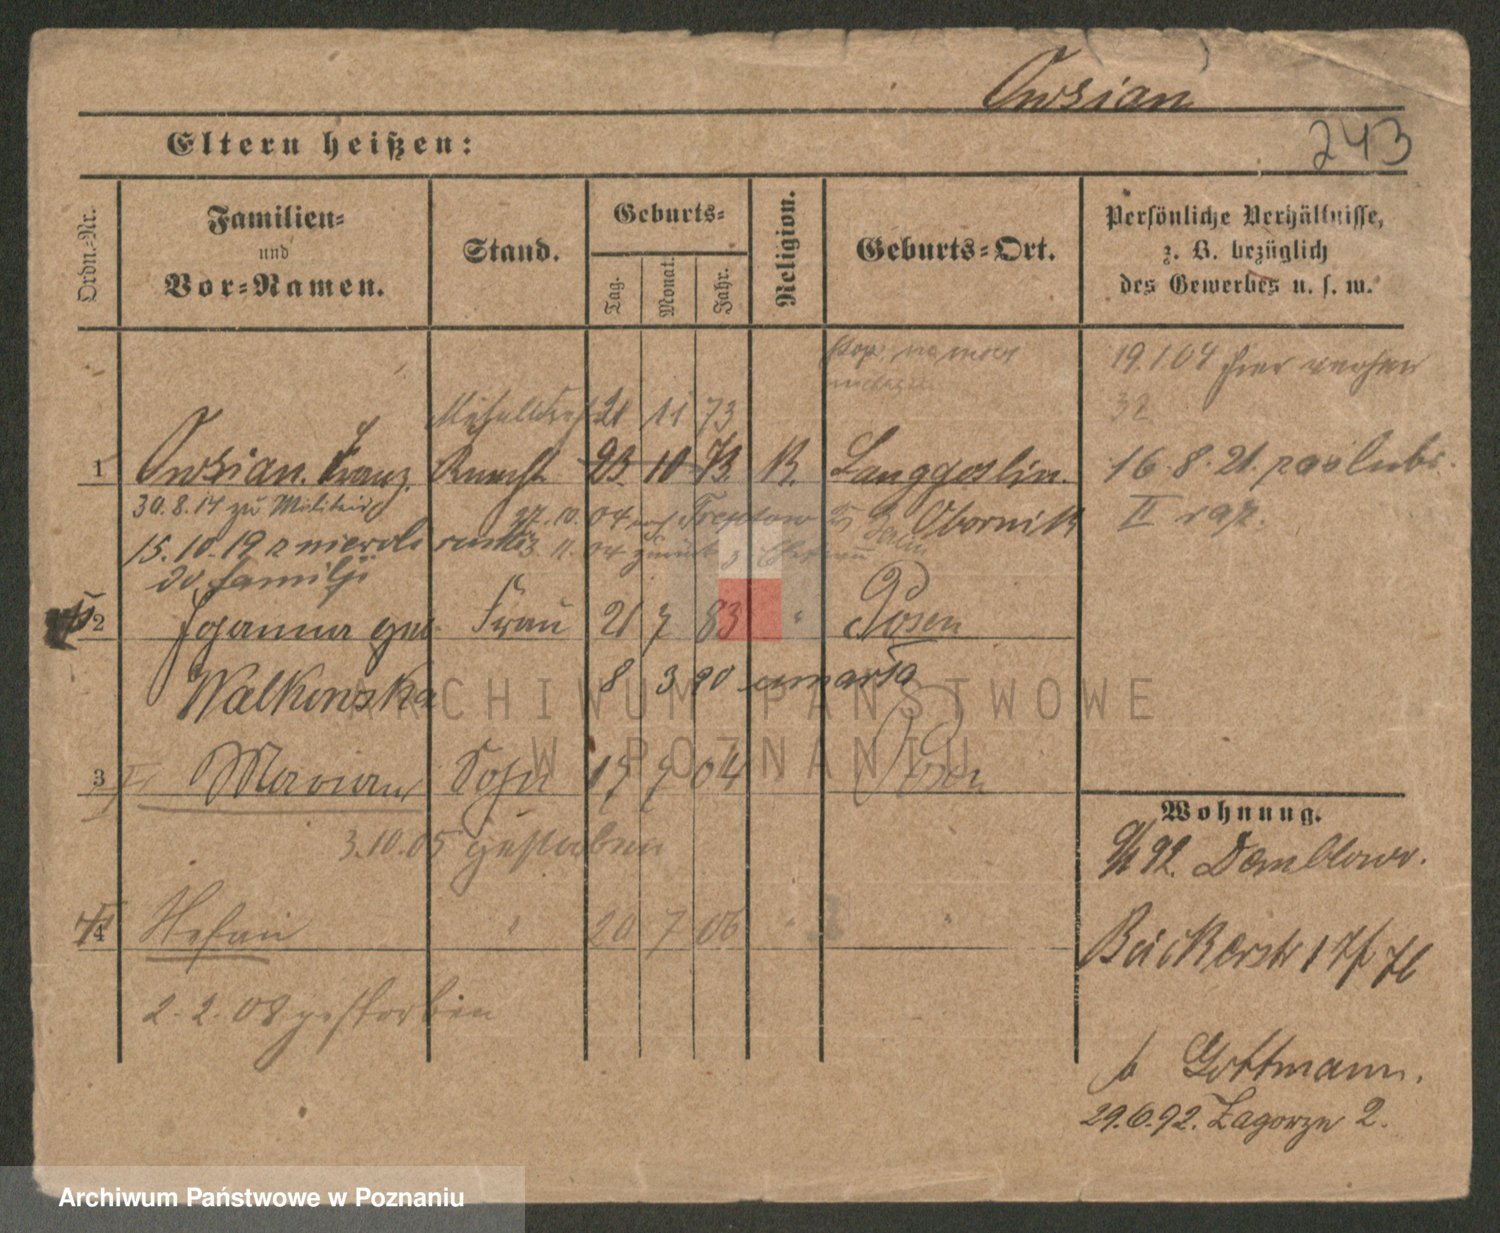 Owsian
243
Eltern heißen:
Ordn.-Nr.
Familien-
und
Vor-Namen.
Stand.
Geburts-
Tag.
Monat.
Jahr.
Religion.
Geburts-Ort.
Persönliche Verhältnisse,
z. B. bezüglich
des Gewerbes u. s. w.
19.1.04 hier
32
21 11 73
1 Owsian. Franz. Knecht 23. 10 73. K. Langgoslin.
16.8.21. poslubi.
30.8.14 zu Militär
27.10.04 nach Treptow
Obornik
II raz.
15.10.19 z niewoli
11.04 zurück
do familji
2 Johanna geb. Frau 21 7 83 " Posen
Walkowska 8 3 20 umarła
3 Marian Sohn 17 7 04 Posen
3.10.05 gestorben
4 Stefan " 20 7 06 " "
2.2.08 gestorben
Wohnung.
92. Dembowo.
Bäckerstr 17
b Gottmann.
29.6.92. Zagorze 2.
ARCHIWUM PAŃSTWOWE
W POZNANIU
Archiwum Państwowe w Poznaniu